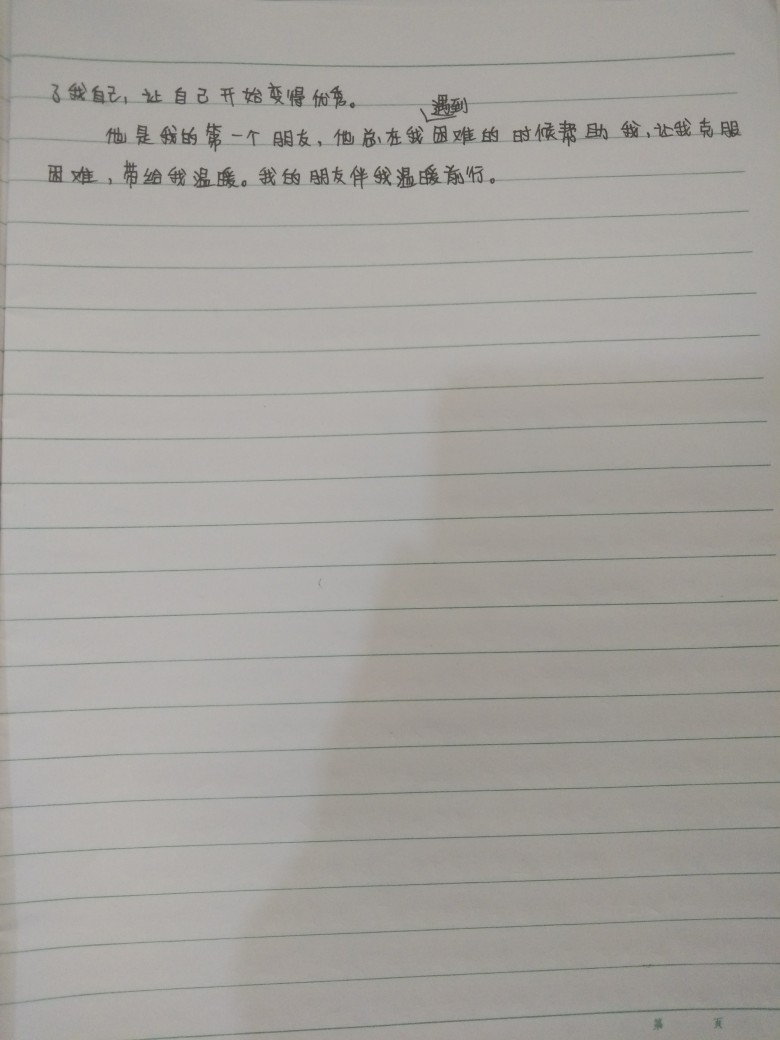 了我自己，让自己开始变得优秀。
遇到
他是我的第一个朋友，他总在我困难的时候帮助我，让我克服
困难，带给我温暖。我的朋友伴我温暖前行。
第 页